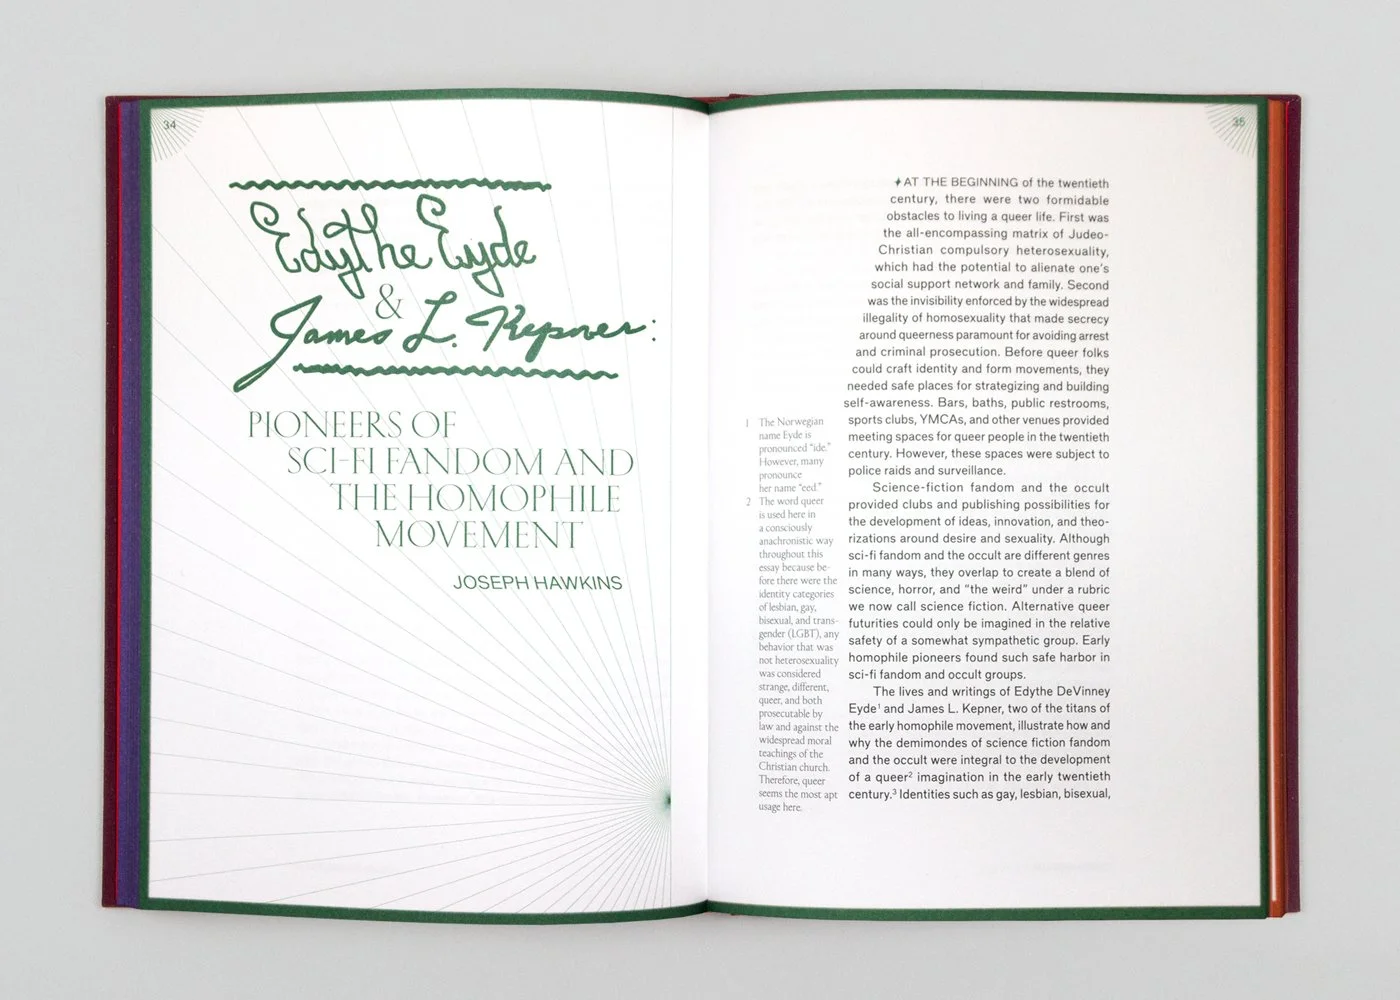 34
Edythe Eyde
&
James L. Kepner:
PIONEERS OF
SCI-FI FANDOM AND
THE HOMOPHILE
MOVEMENT
JOSEPH HAWKINS
35
AT THE BEGINNING of the twentieth
century, there were two formidable
obstacles to living a queer life. First was
the all-encompassing matrix of Judeo-
Christian compulsory heterosexuality,
which had the potential to alienate one's
social support network and family. Second
was the invisibility enforced by the widespread
illegality of homosexuality that made secrecy
around queerness paramount for avoiding arrest
and criminal prosecution. Before queer folks
could craft identity and form movements, they
needed safe places for strategizing and building
self-awareness. Bars, baths, public restrooms,
sports clubs, YMCAs, and other venues provided
meeting spaces for queer people in the twentieth
century. However, these spaces were subject to
police raids and surveillance.
Science-fiction fandom and the occult
provided clubs and publishing possibilities for
the development of ideas, innovation, and theo-
rizations around desire and sexuality. Although
sci-fi fandom and the occult are different genres
in many ways, they overlap to create a blend of
science, horror, and “the weird” under a rubric
we now call science fiction. Alternative queer
futurities could only be imagined in the relative
safety of a somewhat sympathetic group. Early
homophile pioneers found such safe harbor in
sci-fi fandom and occult groups.
The lives and writings of Edythe DeVinney
Eyde¹ and James L. Kepner, two of the titans of
the early homophile movement, illustrate how and
why the demimondes of science fiction fandom
and the occult were integral to the development
of a queer² imagination in the early twentieth
century.³ Identities such as gay, lesbian, bisexual,
1 The Norwegian
name Eyde is
pronounced “ide.”
However, many
pronounce
her name “eed.”
2 The word queer
is used here in
a consciously
anachronistic way
throughout this
essay because be-
fore there were the
identity categories
of lesbian, gay,
bisexual, and trans-
gender (LGBT), any
behavior that was
not heterosexuality
was considered
strange, different,
queer, and both
prosecutable by
law and against the
widespread moral
teachings of the
Christian church.
Therefore, queer
seems the most apt
usage here.